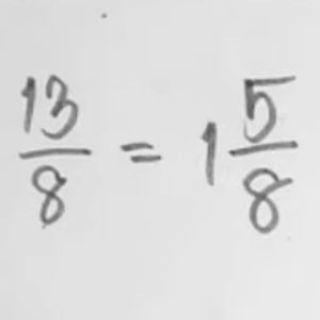 13/8 = 1 5/8